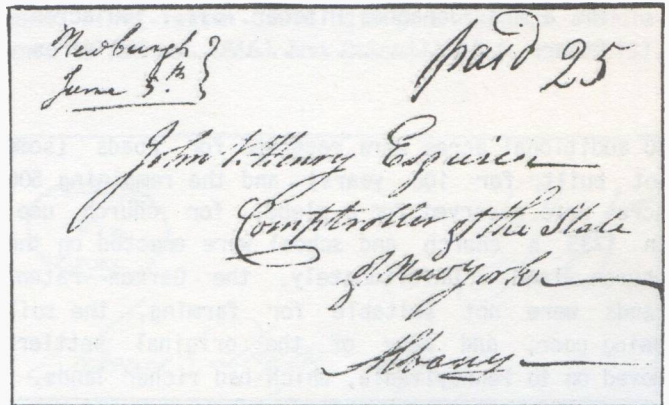 Newburgh }
June 5.th
paid 25
John V Henry Esquire
Comptroller of the State
of New York
Albany